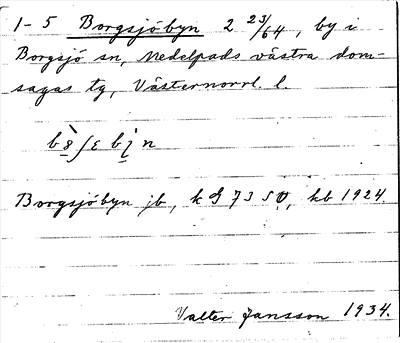 1-5 Borgsjöbyn 2 23/64, by i
Borgsjö sn, Medelpads västra dom-
sagas tg, Västernorrl. l.
Borgsjöbyn jb, kb 1924.
Valter Jansson 1934.